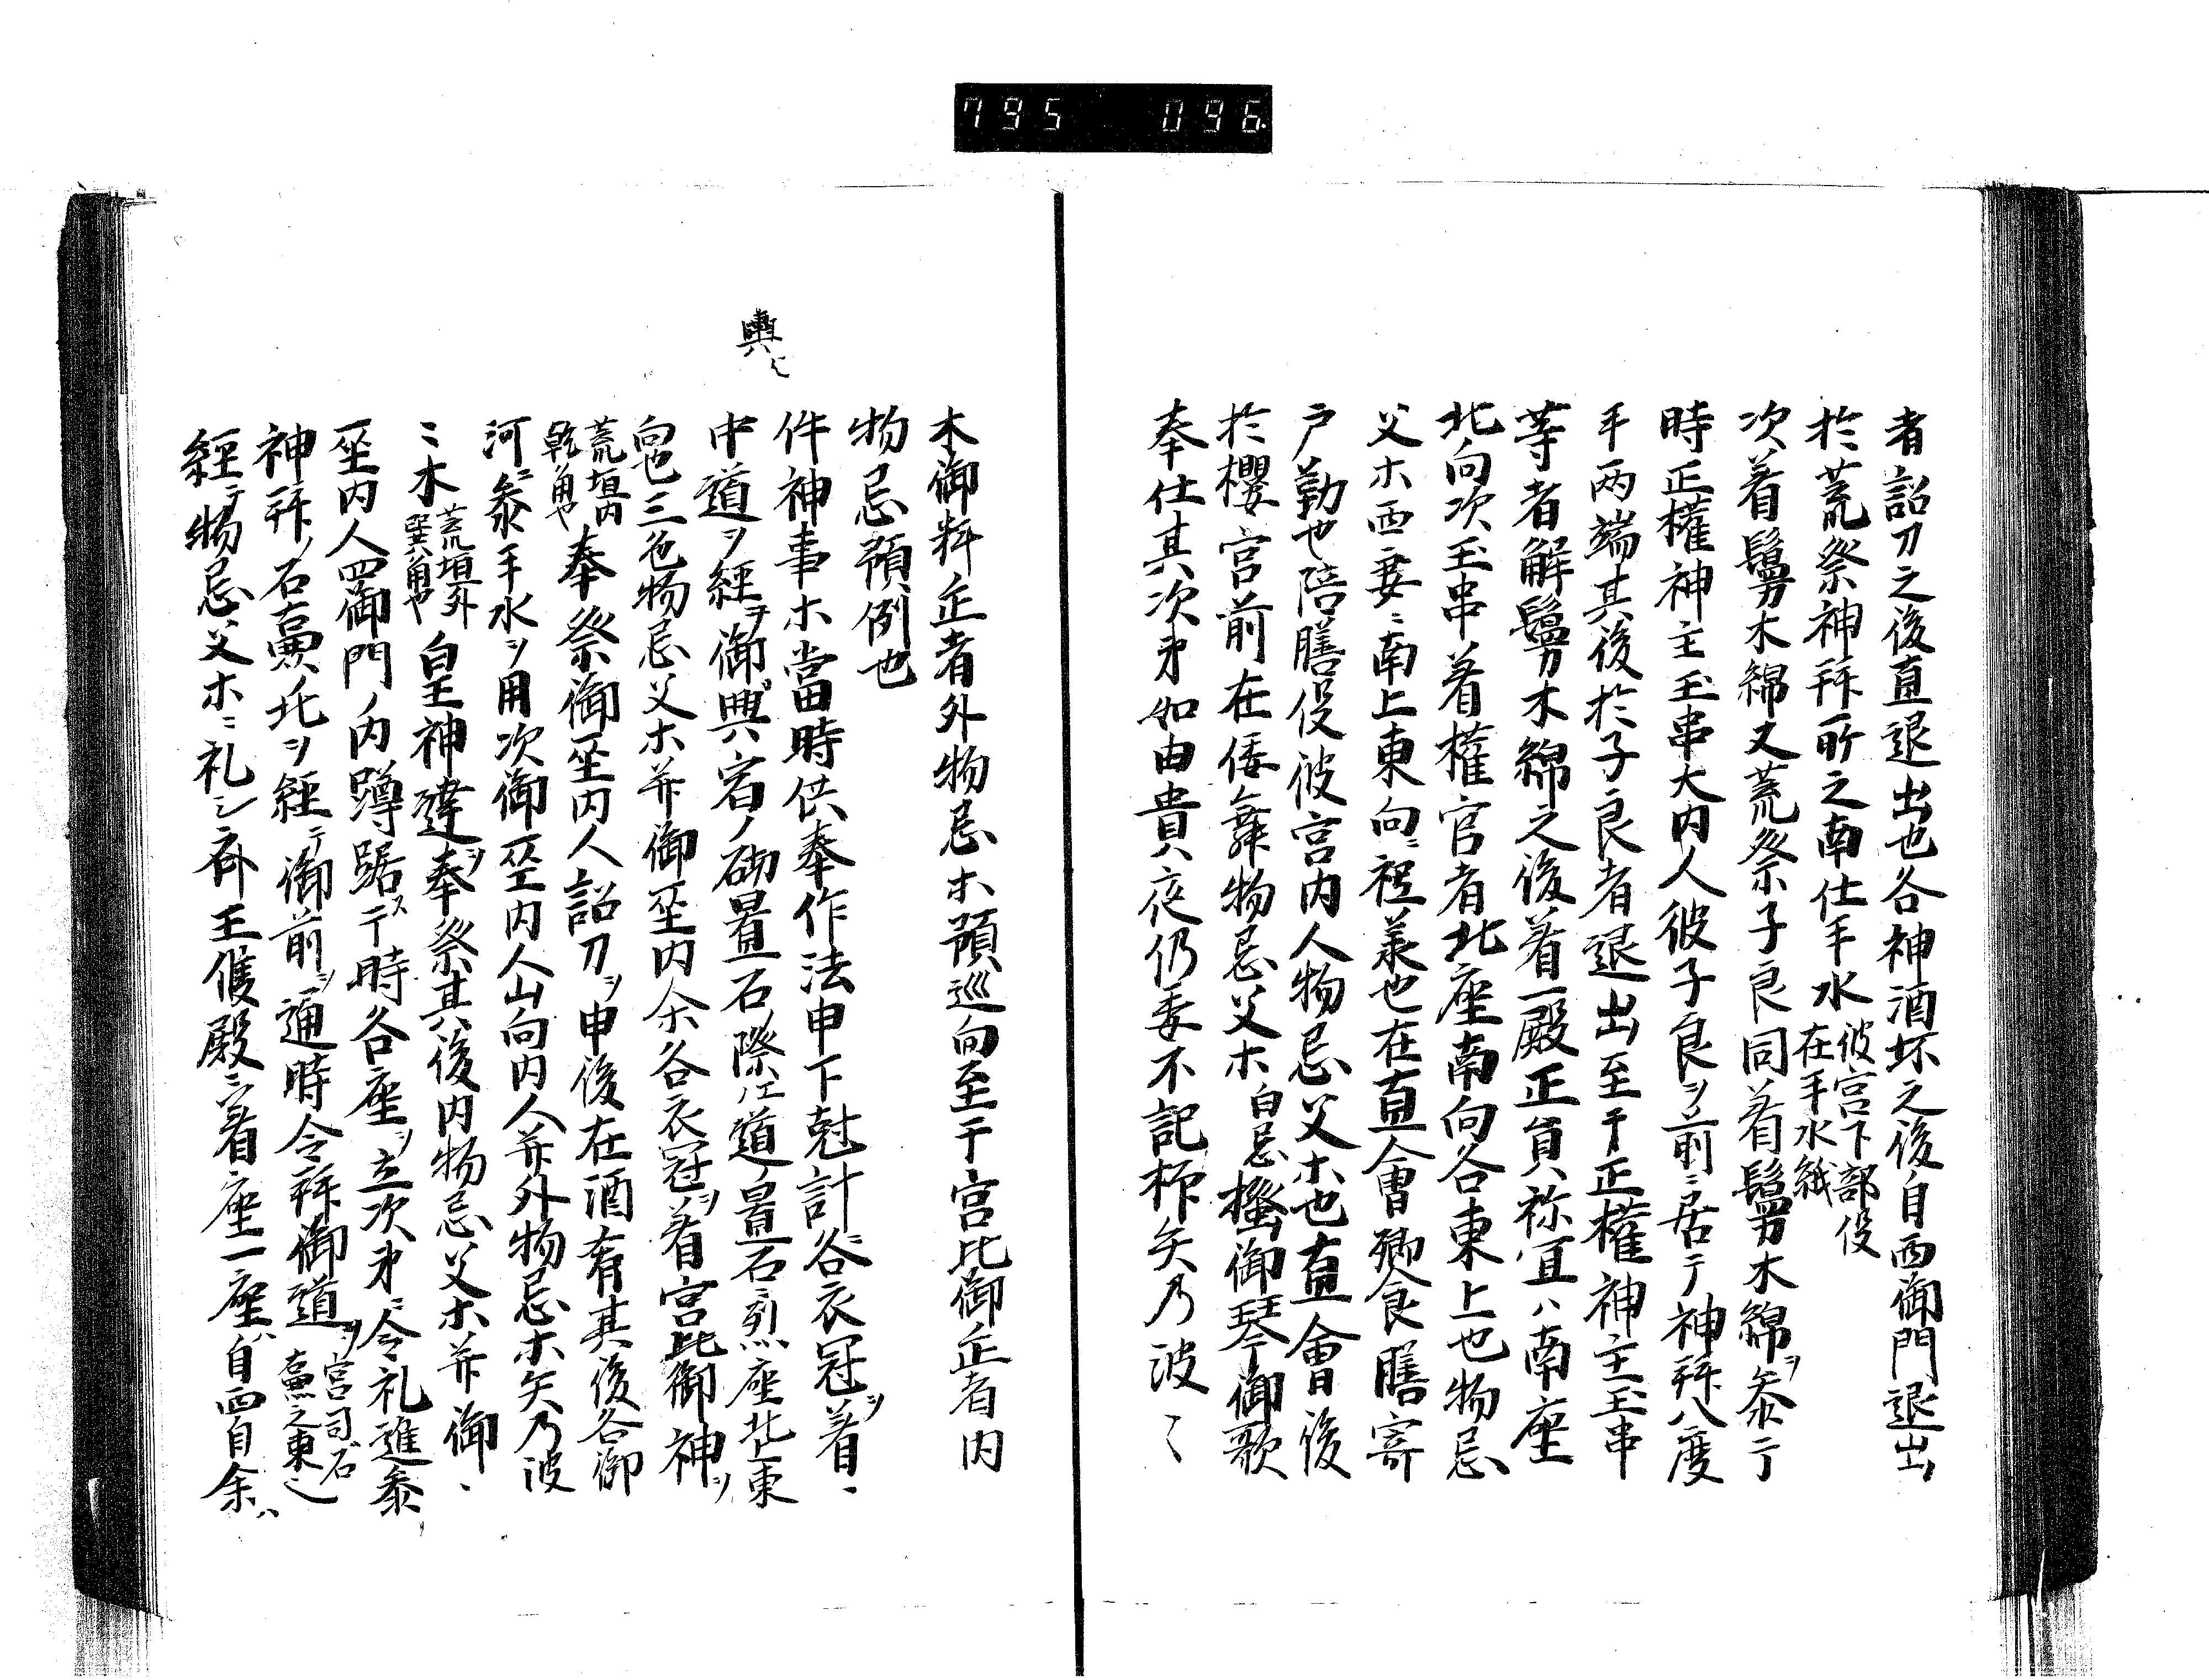 795 096
者詔刀之後直退出也各神酒坏之後自西御門退出
於荒祭神拜所之南仕手水彼宮下部役在手水
次着鬘木綿又荒祭子良同着鬘木綿ヲ参テ
時正權神主玉串大内人彼子良ヲ前ニ居テ神拜八度
手両端其後於子良者退出至于正權神主玉串
等者解鬘木綿之後着一殿正員祢宜ハ南座
北向次玉串着權官者北座南向各東上也物忌
父木西妻ニ南上東向ニ祗義也在直會郷食膳寄
戸勤也陪膳役彼宮内人物忌父木也直會後
於櫻宮前在倭舞物忌父木白忌御琴御歌
奉仕其次第如由貴夜仍委不記柝矢乃波ミ
木御料丘者外物忌木預巡向至于宮比御丘者内
物忌預例也
件神事木當時供奉作法申下尅計各衣冠ヲ着、
中道ヲ經ヲ御輿宿ノ砌置石際江道ノ置石ニ烈座北上東
向也三色物忌父木并御巫内余各衣冠ヲ着宮比御神ヲ
荒垣内乾角也奉祭御巫内人詔刀ヲ申後在酒肴其後各御
河ニ参手水ヲ用次御巫内人山向内人并外物忌木矢乃波
ミ木荒垣外巽角也皇神達ヲ奉祭其後内物忌父木并御、
巫内人四御門ノ内蹲踞ステ時各座ヲ立次第ニ令礼進参
神拜ノ石壷ノ北ヲ經テ御前ヲ通時令拜御道ヲ宮司石壷之東也
經テ物忌父木ニ礼シ斎王候殿ニ着座一座ハ自西自余ハ
輿